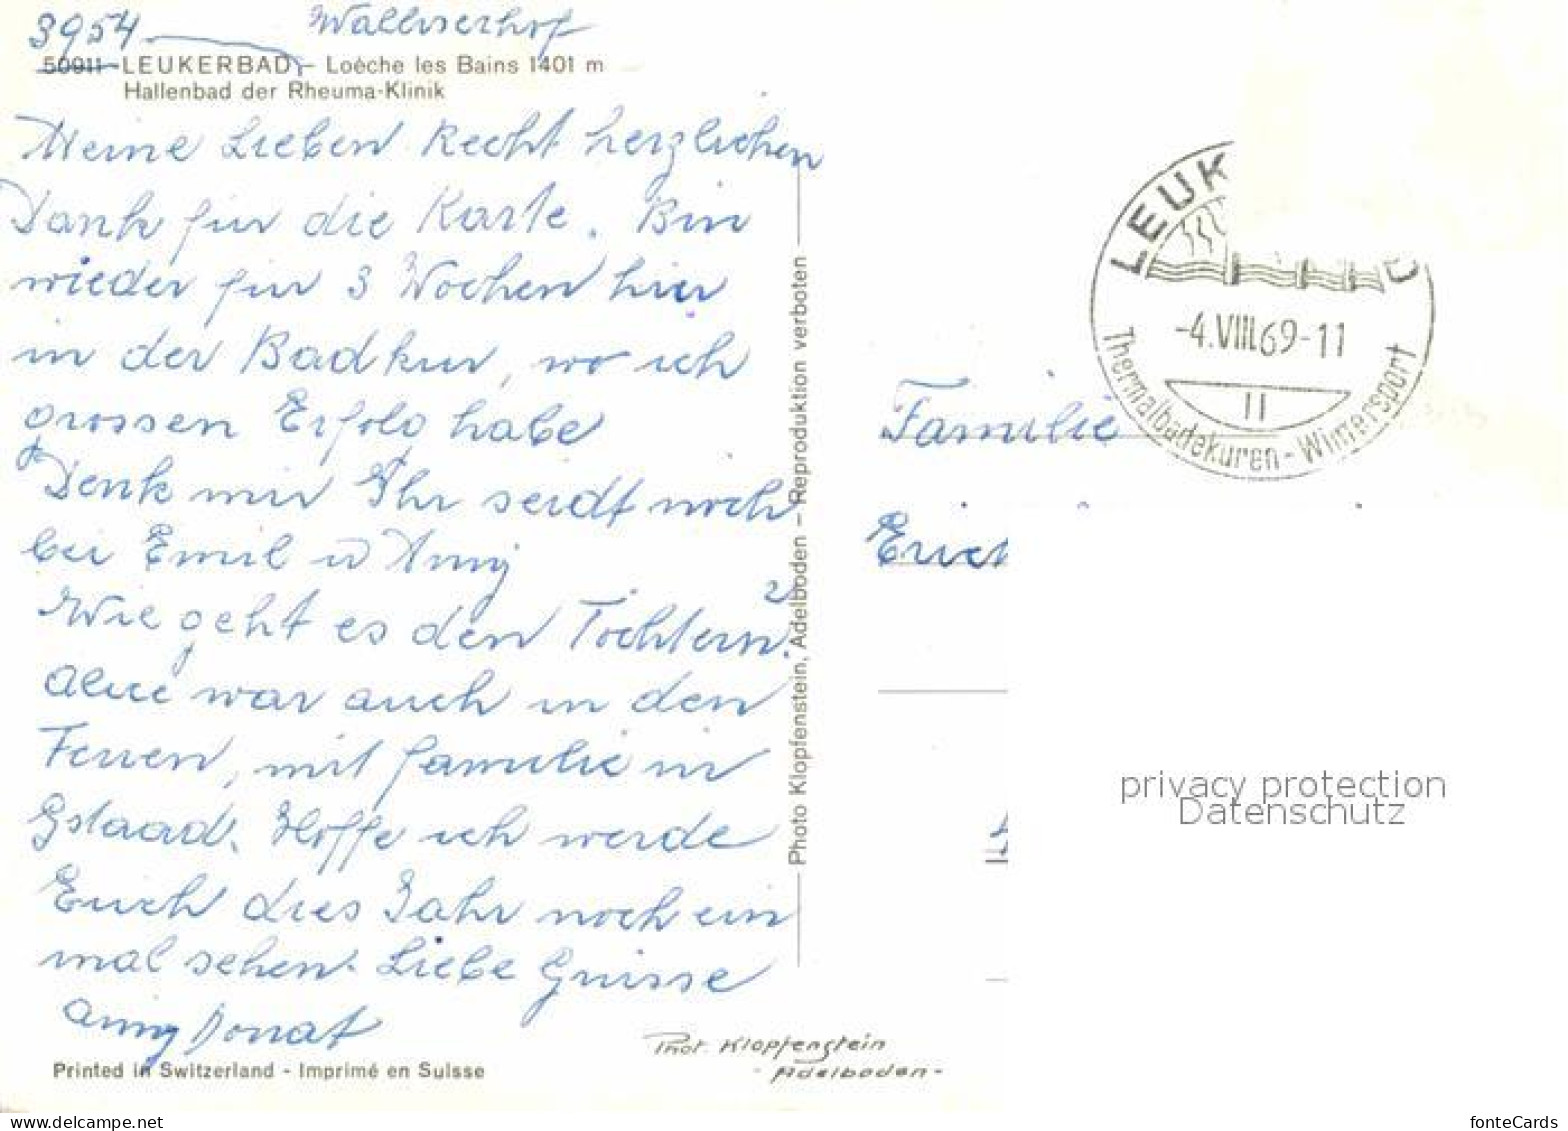 3954 Walliserhof
50911 LEUKERBAD – Loèche les Bains 1401 m
Hallenbad der Rheuma-Klinik
Meine Lieben Recht herzlichen
Dank für die Karte. Bin
wieder für 3 Wochen hier
in der Badkur, wo ich
grossen Erfolg habe
Denk mir Ihr seidt noch
bei Emil u Anny
Wie geht es den 2 Töchtern?
Alice war auch in den
Ferien, mit Familie in
Gstaad. Hoffe ich werde
Euch dies Jahr noch ein
mal sehen. Liebe Grüsse
Anny Donat
Printed in Switzerland - Imprimé en Suisse
Phot. Klopfenstein
- Adelboden -
Photo Klopfenstein, Adelboden – Reproduktion verboten
LEUK D
-4.VIII.69-11
II
Thermalbadekuren - Wintersport
Familie
privacy protection
Datenschutz
www.delcampe.net
fonteCards